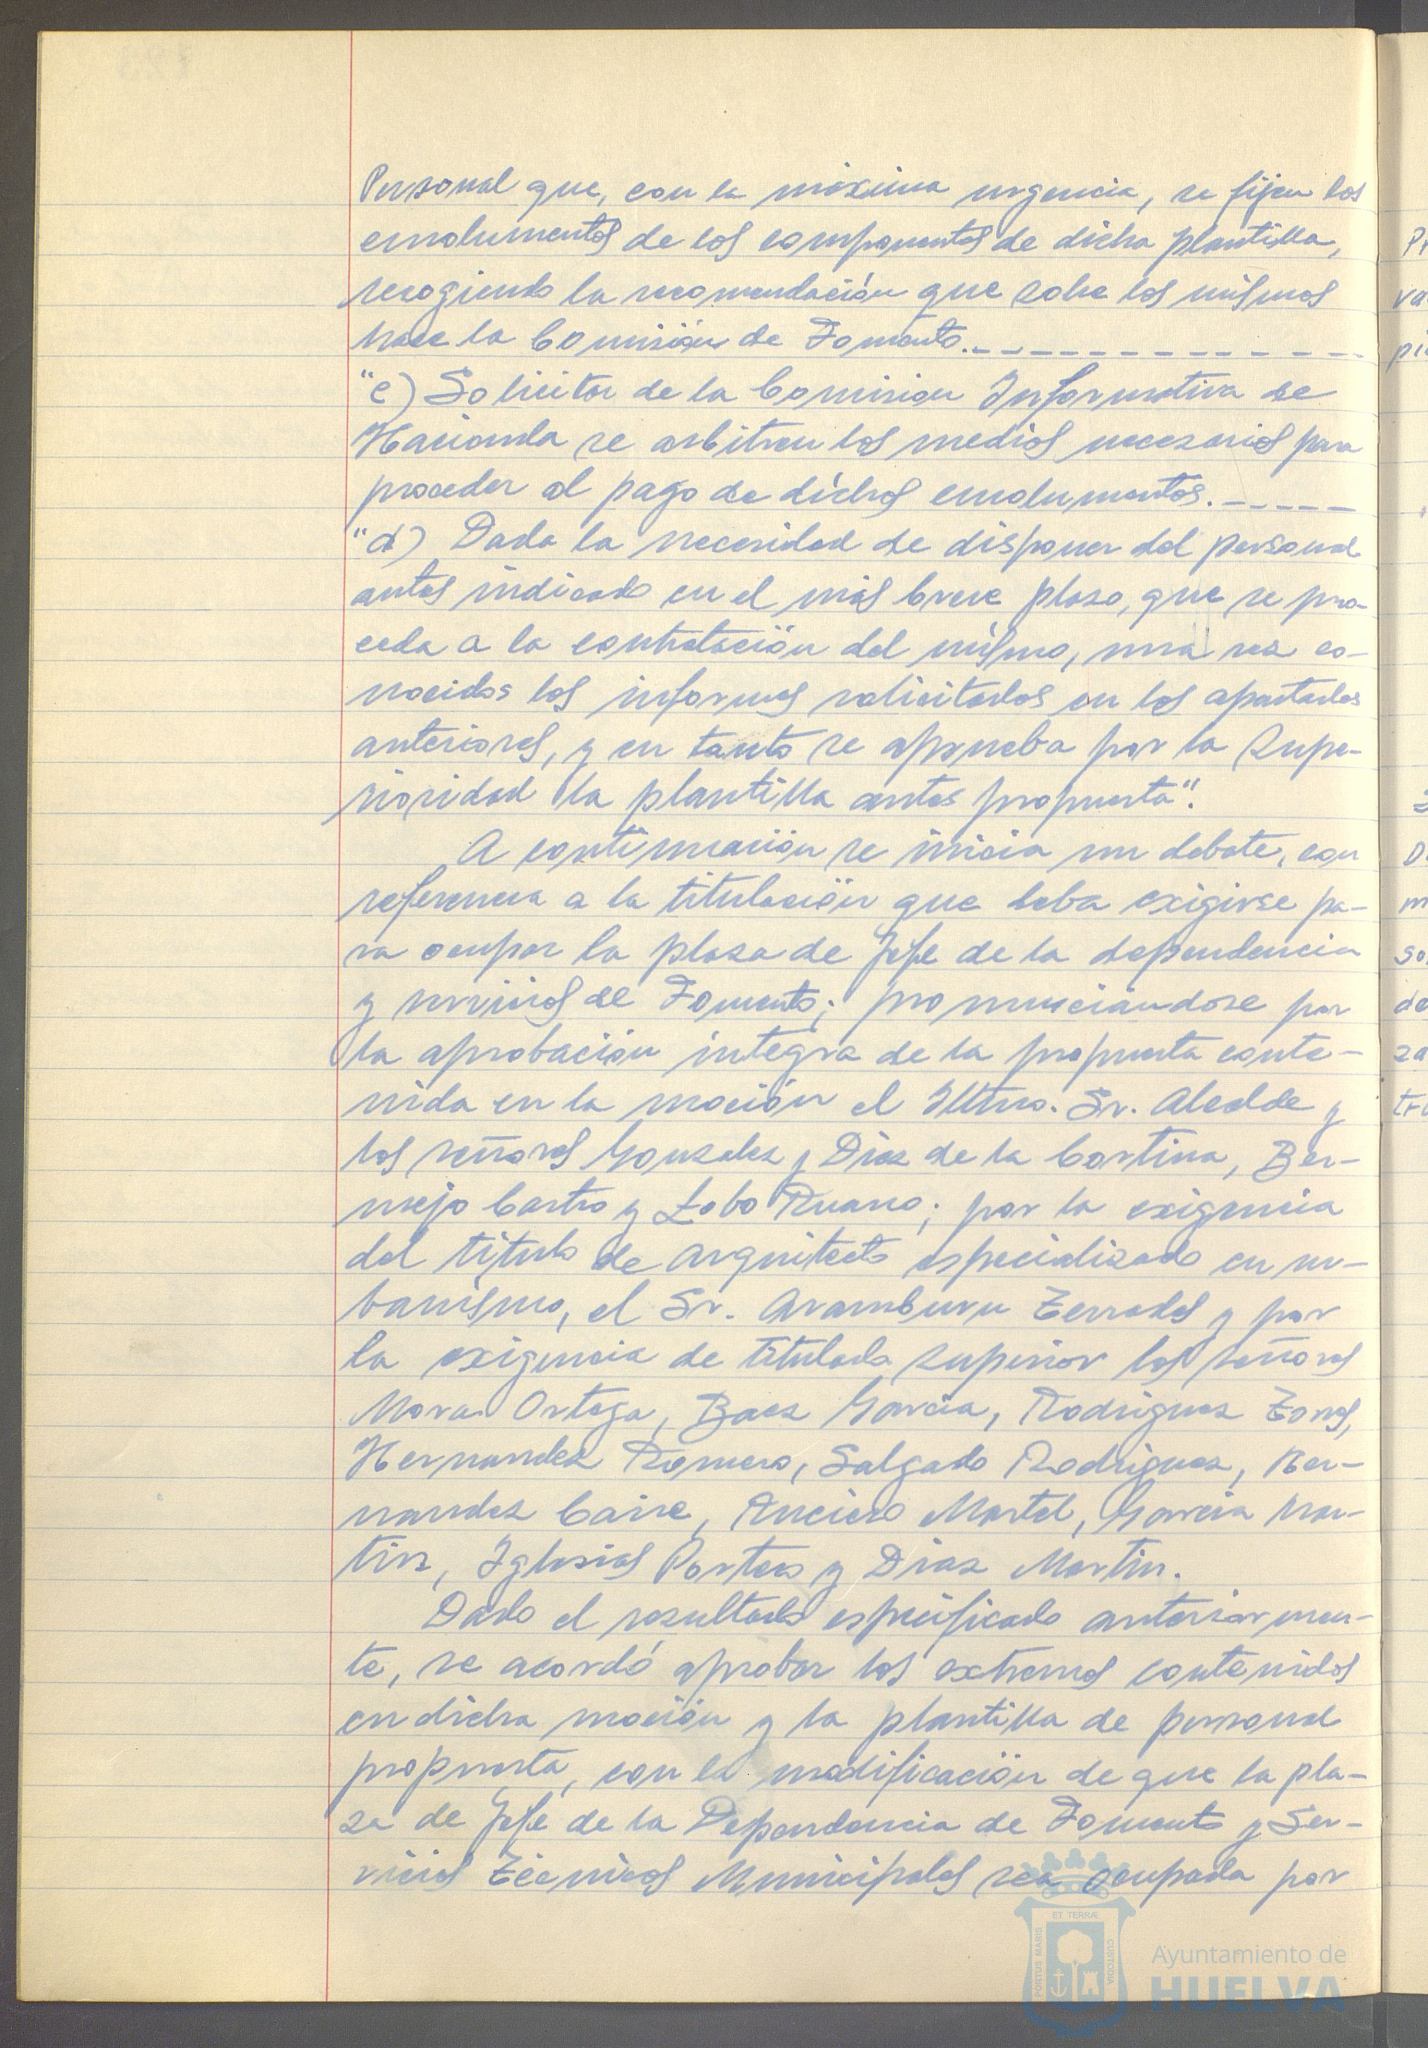 Personal que, con la máxima urgencia, se fijen los
emolumentos de los componentes de dicha plantilla,
recogiendo la recomendación que sobre los mismos
hace la Comisión de Fomento.
"c) Solicitar de la Comision Informativa de
Hacienda se arbitren los medios necesarios para
proceder al pago de dichos emolumentos.
"d) Dada la necesidad de disponer del personal
antes indicado en el más breve plazo, que se pro-
ceda a la contratación del mismo, una vez co-
nocidos los informes solicitados en los apartados
anteriores, y en tanto se aprueba por la Supe-
rioridad la plantilla antes propuesta".
A continuación se inicia un debate, con
referencia a la titulación que deba exigirse pa-
ra ocupar la plaza de Jefe de la dependencia
y servicios de Fomento; pronunciandose por
la aprobación integra de la propuesta conte-
nida en la moción el Iltmo. Sr. Alcalde y
los señores Gonzalez y Diaz de la Cortina, Ber-
mejo Castro y Lobo Ruano; por la exigencia
del titulo de arquitecto especializado en ur-
banismo, el Sr. Aramburu Terrades y por
la exigencia de titulado superior los señores
Mora Ortega, Baez Garcia, Rodriguez Torres,
Hernandez Romero, Salgado Rodriguez, Her-
nandez Caire, Anciero Martel, Garcia Mar-
tin, Iglesias Portero y Diaz Martin.
Dado el resultado especificado anteriormen-
te, se acordó aprobar los extremos contenidos
en dicha moción y la plantilla de personal
propuesta, con la modificación de que la pla-
za de Jefe de la Dependencia de Fomento y Ser-
vicios Técnicos Municipales sea ocupada por
PORTUS MARIS
ET TERRÆ
CUSTODIA
Ayuntamiento de
HUELVA